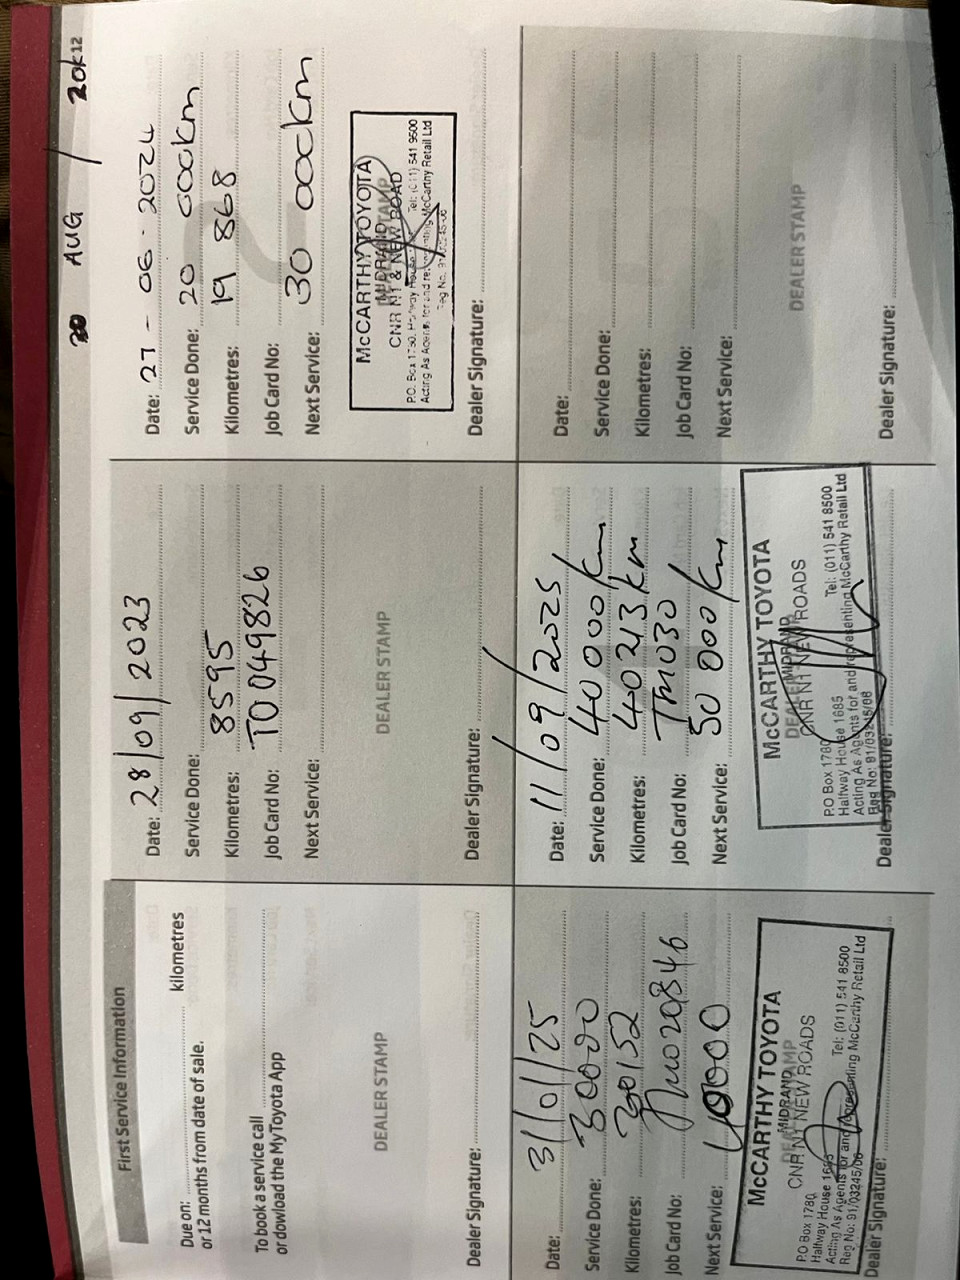 20 AUG / 20K12
First Service Information
Due on: kilometres
or 12 months from date of sale.
To book a service call
or dowload the MyToyota App
DEALER STAMP
Dealer Signature:
Date: 28/09/2023
Service Done:
Kilometres: 8595
Job Card No: T0049826
Next Service:
DEALER STAMP
Dealer Signature:
Date: 27-06-2024
Service Done: 20 000km
Kilometres: 19 868
Job Card No:
Next Service: 30 000km
McCARTHY TOYOTA
MIDRAND
CNR N1 & NEW ROAD
P.O. Box 1780, Halfway House Tel: (011) 541 9500
Acting As Agents for and representing McCarthy Retail Ltd
Reg No.
Dealer Signature:
Date: 31/01/25
Service Done: 30000
Kilometres: 30152
Job Card No:
Next Service: 40000
McCARTHY TOYOTA
MIDRAND
CNR N1 NEW ROADS
P.O Box 1780
Halfway House 1685 Tel: (011) 541 8500
Acting As Agents for and representing McCarthy Retail Ltd
Reg No: 91/03245/06
Dealer Signature:
Date: 11/09/2025
Service Done: 40 000 km
Kilometres: 40213 km
Job Card No:
Next Service: 50 000 km
McCARTHY TOYOTA
DEALER STAMP
MIDRAND
CNR N1 NEW ROADS
P.O Box 1780
Halfway House 1685 Tel: (011) 541 8500
Acting As Agents for and representing McCarthy Retail Ltd
Reg No: 91/03245/06
Dealer Signature:
Date:
Service Done:
Kilometres:
Job Card No:
Next Service:
DEALER STAMP
Dealer Signature: